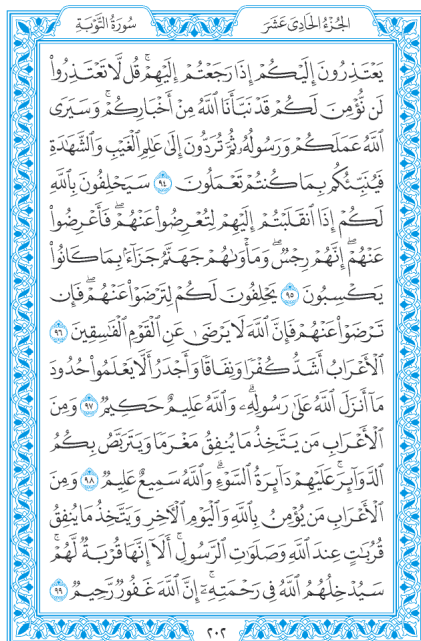 الجُزْءُ الحَادِى عَشَرَ
سُورَةُ التَّوْبَةِ
يَعْتَذِرُونَ إِلَيْكُمْ إِذَا رَجَعْتُمْ إِلَيْهِمْۚ قُل لَّا تَعْتَذِرُوا۟
لَن نُّؤْمِنَ لَكُمْ قَدْ نَبَّأَنَا ٱللَّهُ مِنْ أَخْبَارِكُمْۚ وَسَيَرَى
ٱللَّهُ عَمَلَكُمْ وَرَسُولُهُۥ ثُمَّ تُرَدُّونَ إِلَىٰ عَٰلِمِ ٱلْغَيْبِ وَٱلشَّهَٰدَةِ
فَيُنَبِّئُكُم بِمَا كُنتُمْ تَعْمَلُونَ ٩٤ سَيَحْلِفُونَ بِٱللَّهِ
لَكُمْ إِذَا ٱنقَلَبْتُمْ إِلَيْهِمْ لِتُعْرِضُوا۟ عَنْهُمْۖ فَأَعْرِضُوا۟
عَنْهُمْۖ إِنَّهُمْ رِجْسٌۖ وَمَأْوَىٰهُمْ جَهَنَّمُ جَزَآءًۢ بِمَا كَانُوا۟
يَكْسِبُونَ ٩٥ يَحْلِفُونَ لَكُمْ لِتَرْضَوْا۟ عَنْهُمْۖ فَإِن
تَرْضَوْا۟ عَنْهُمْ فَإِنَّ ٱللَّهَ لَا يَرْضَىٰ عَنِ ٱلْقَوْمِ ٱلْفَٰسِقِينَ ٩٦
ٱلْأَعْرَابُ أَشَدُّ كُفْرًا وَنِفَاقًا وَأَجْدَرُ أَلَّا يَعْلَمُوا۟ حُدُودَ
مَآ أَنزَلَ ٱللَّهُ عَلَىٰ رَسُولِهِۦۗ وَٱللَّهُ عَلِيمٌ حَكِيمٌ ٩٧ وَمِنَ
ٱلْأَعْرَابِ مَن يَتَّخِذُ مَا يُنفِقُ مَغْرَمًا وَيَتَرَبَّصُ بِكُمُ
ٱلدَّوَآئِرَۚ عَلَيْهِمْ دَآئِرَةُ ٱلسَّوْءِۗ وَٱللَّهُ سَمِيعٌ عَلِيمٌ ٩٨ وَمِنَ
ٱلْأَعْرَابِ مَن يُؤْمِنُ بِٱللَّهِ وَٱلْيَوْمِ ٱلْءَاخِرِ وَيَتَّخِذُ مَا يُنفِقُ
قُرُبَٰتٍ عِندَ ٱللَّهِ وَصَلَوَٰتِ ٱلرَّسُولِۚ أَلَآ إِنَّهَا قُرْبَةٌ لَّهُمْۚ
سَيُدْخِلُهُمُ ٱللَّهُ فِى رَحْمَتِهِۦٓۗ إِنَّ ٱللَّهَ غَفُورٌ رَّحِيمٌ ٩٩
٢٠٢